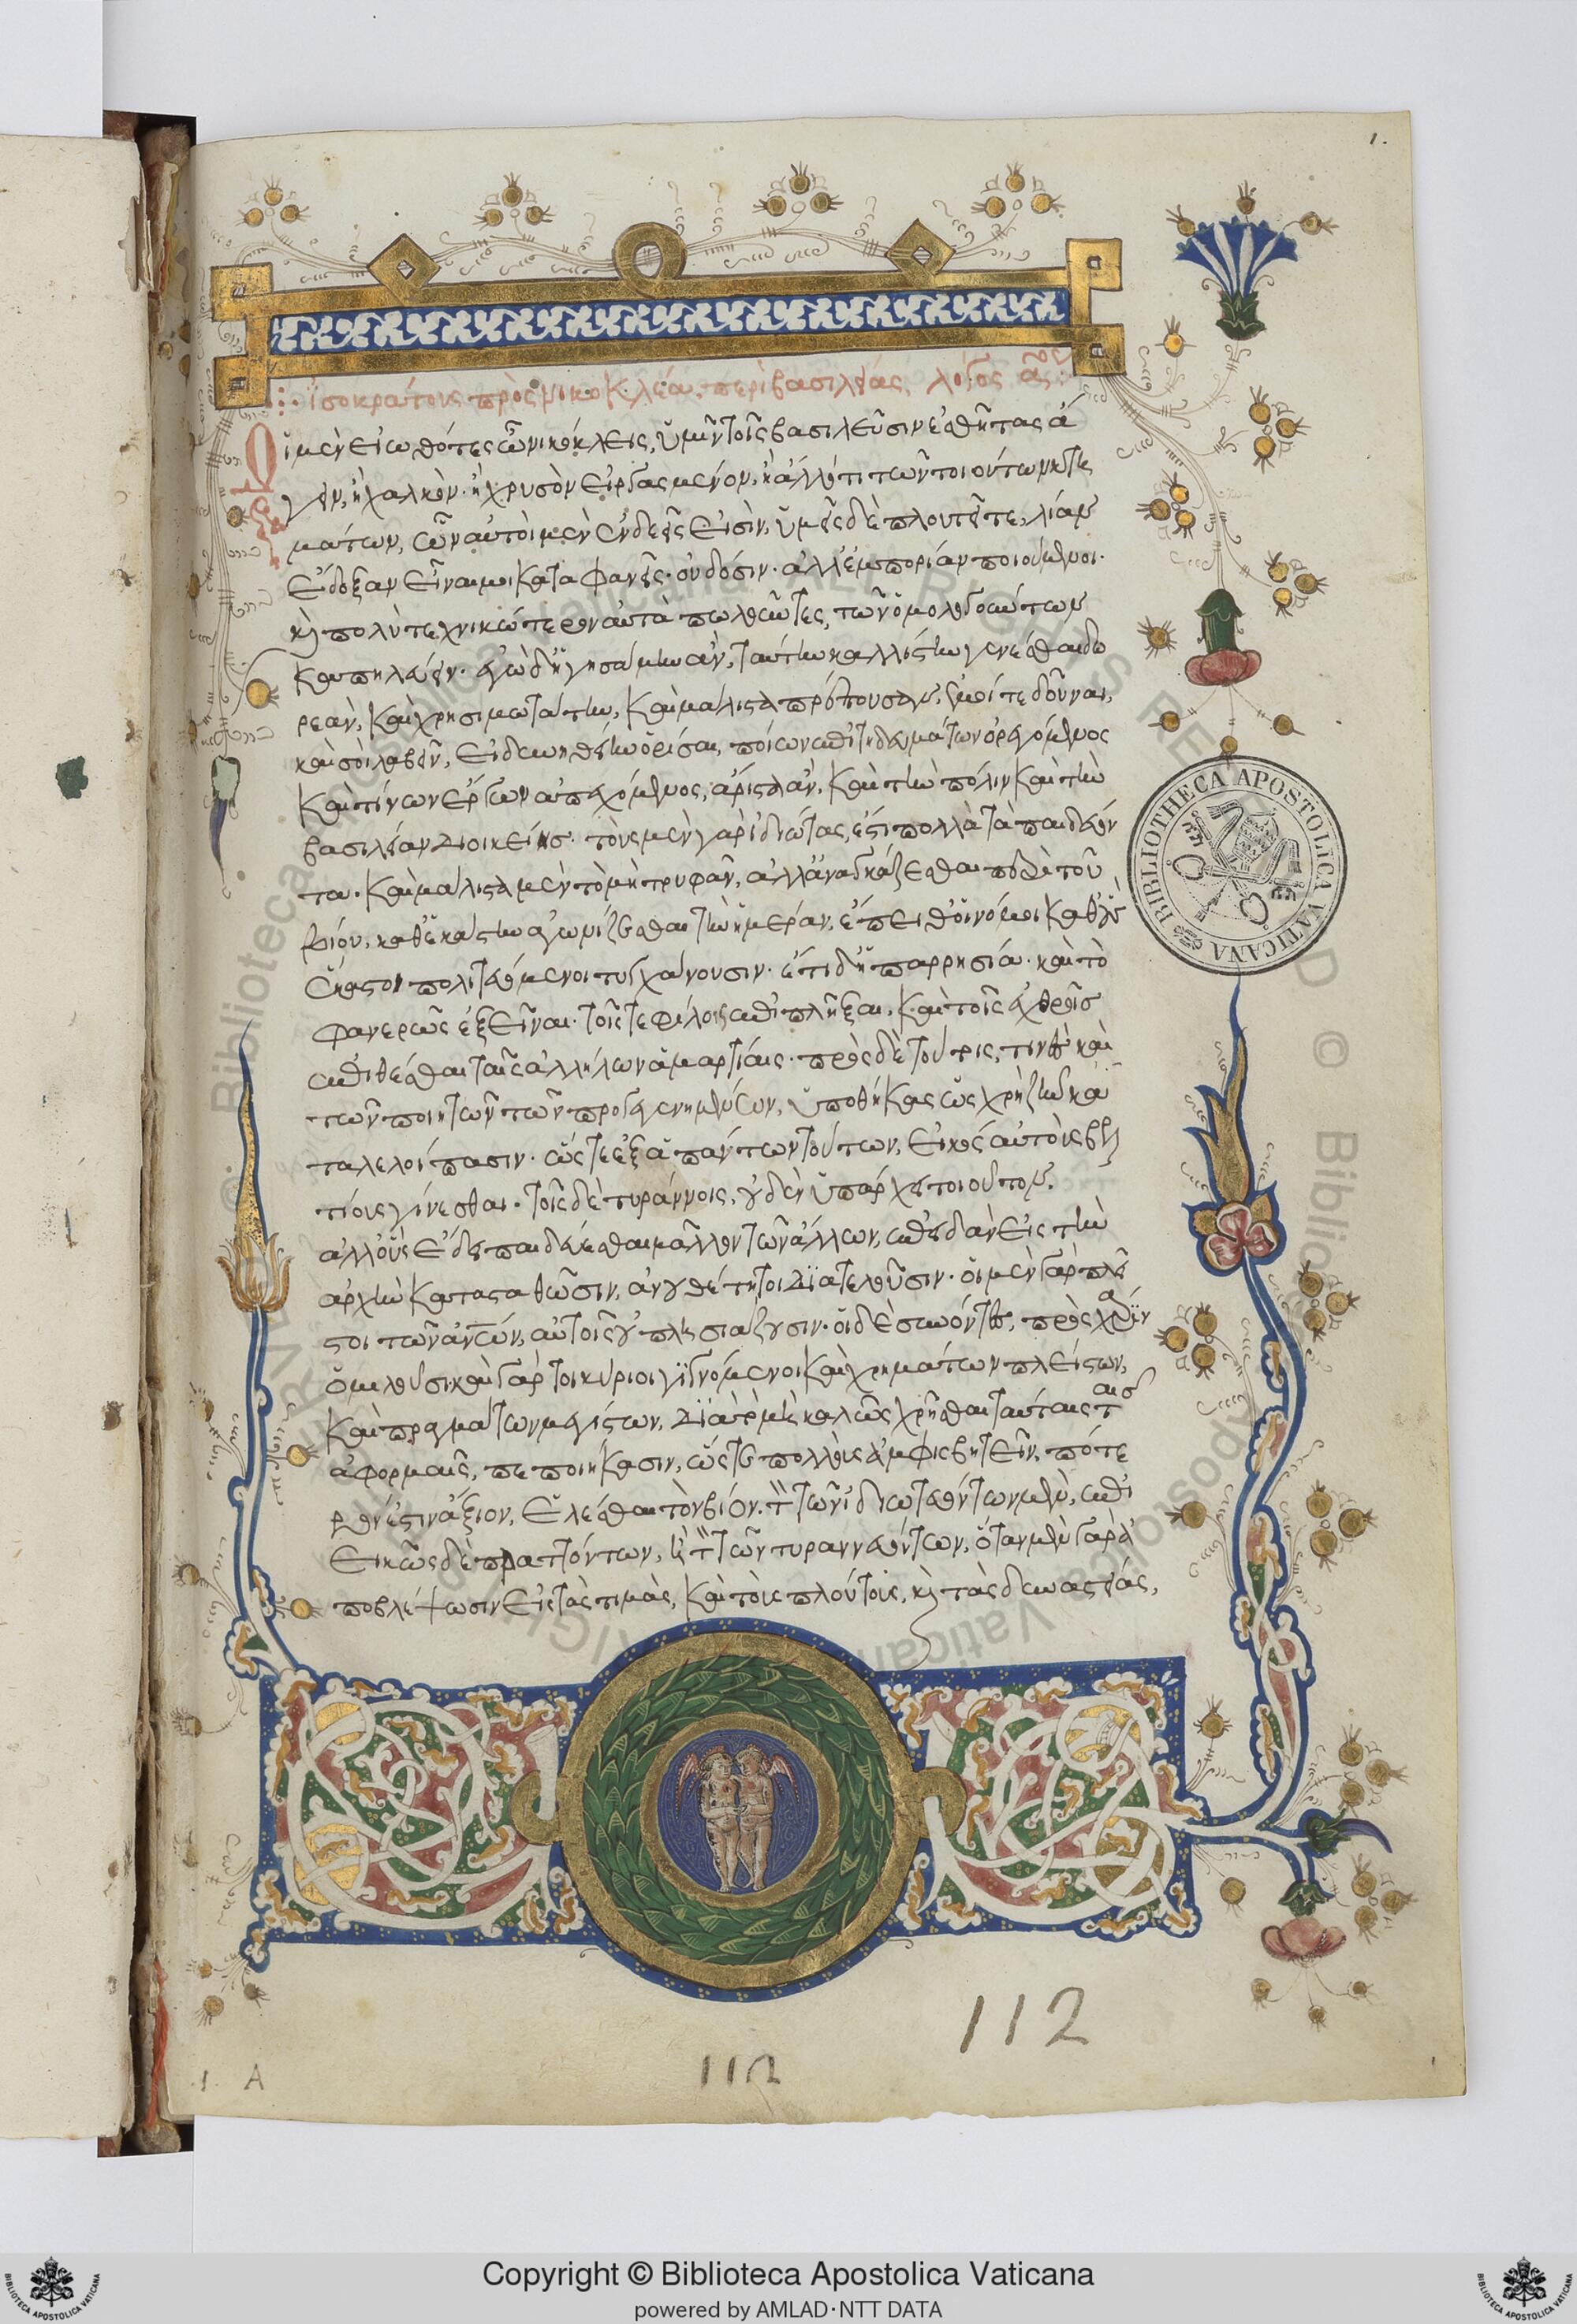 1.
ἰσοκράτους πρὸς νικοκλέα, περὶ βασιλείας, λόγος
Οἱ μὲν εἰωθότες ὦ νικόκλεις, ὑμῖν τοῖς βασιλεῦσιν ἐσθῆτας ἄ
γειν, ἢ χαλκὸν. ἢ χρυσὸν εἰργασμένον, ἢ ἄλλό τι τῶν τοιούτων κτη
μάτων, ὧν αὐτοὶ μὲν ἐνδεεῖς εἰσὶν, ὑμεῖς δὲ πλουτεῖτε, λίαν
ἔδοξαν εἶναι μοι καταφανεῖς. οὐ δόσιν. ἀλλ' ἐμπορίαν ποιούμενοι.
καὶ πολὺ τεχνικώτερον αὐτὰ πωλοῦντες, τῶν ὁμολογούντων
καπηλεύειν. ἐγὼ δ' ἡγησάμην ἂν, ταύτην καλλίστην γενέσθαι δω
ρεὰν, καὶ χρησιμωτάτην, καὶ μάλιστα πρέπουσαν, ἐμοί τε δοῦναι,
καὶ σοὶ λαβεῖν, εἰ δυνηθείην ὁρίσαι, ποίων ἐπιτηδευμάτων ὀρεγόμενος
καὶ τίνων ἔργων ἀπεχόμενος, ἄριστ' ἂν, καὶ τὴν πόλιν καὶ τὴν
βασιλείαν διοικείης. τοὺς μὲν γὰρ ἰδιώτας, ἐστὶ πολλὰ τὰ παιδεύον
τα. καὶ μάλιστα μὲν τὸ μὴ τρυφᾶν, ἀλλ' ἀναγκάζεσθαι περὶ τοῦ
βίου, καθ' ἑκάστην ἀγωνίζεσθαι τὴν ἡμέραν, ἔπειθ' οἱ νόμοι καθ' οὓς
ἕκαστοι πολιτευόμενοι τυγχάνουσιν. ἔτι δ' ἡ παρρησία. καὶ τὸ
φανερῶς ἐξεῖναι. τοῖς τε φίλοις ἐπιπλῆξαι, καὶ τοῖς ἐχθροῖς
ἐπιθέσθαι ταῖς ἀλλήλων ἁμαρτίαις. πρὸς δὲ τούτοις, τινὲς καὶ
τῶν ποιητῶν τῶν προγεγενημένων, ὑποθήκας ὡς χρὴ ζῆν κα
ταλελοίπασιν. ὥστε ἐξ ἁπάντων τούτων, εἰκὸς αὐτοὺς βελ
τίους γίνεσθαι. τοῖς δὲ τυράννοις, οὐδὲν ὑπάρχει τοιοῦτον.
ἀλλ' οὓς ἔδει παιδεύεσθαι μᾶλλον τῶν ἄλλων, ἐπειδὰν εἰς τὴν
ἀρχὴν κατασταθῶσιν, ἀνουθέτητοι διατελοῦσιν. οἱ μὲν γὰρ πλεῖ
στοι τῶν ἀνθρώπων, αὐτοῖς οὐ πλησιάζουσιν. οἱ δὲ συνόντες, πρὸς χάριν
ὁμιλοῦσι. καὶ γάρ τοι κύριοι γιγνόμενοι καὶ χρημάτων πλείστων,
καὶ πραγμάτων μεγίστων, διὰ τὸ μὴ καλῶς χρῆσθαι ταύταις ταῖς
ἀφορμαῖς, πεποιήκασιν, ὥστε πολλοὺς ἀμφισβητεῖν, πότε
ρόν ἐστιν ἄξιον, ἑλέσθαι τὸν βίον. τὸν τῶν ἰδιωτευόντων μὲν, ἐπι
εικῶς δὲ πραττόντων, ἢ τὸν τῶν τυραννευόντων, ὅταν μὲν γὰρ ἀ
ποβλέψωσιν εἰς τὰς τιμὰς, καὶ τοὺς πλούτους, καὶ τὰς δυναστείας,
BIBLIOTHECA APOSTOLICA VATICANA
112
112
1 A
Copyright © Biblioteca Apostolica Vaticana
powered by AMLAD·NTT DATA